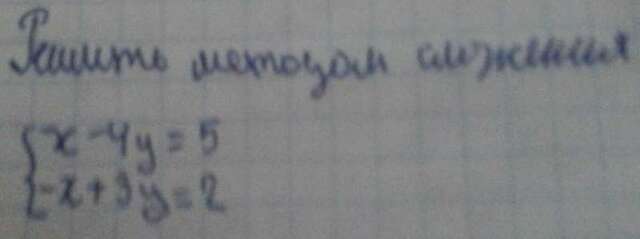 Решить методом сложения
{x-4y=5
{-x+3y=2